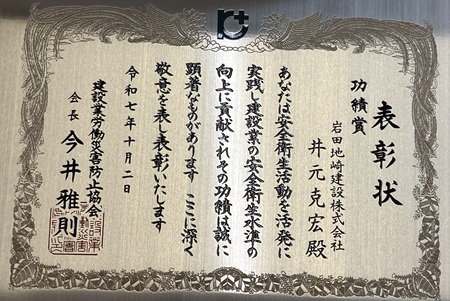 表彰状
功績賞
岩田地崎建設株式会社
井元克宏殿
あなたは安全衛生活動を活発に
実践し建設業の安全衛生水準の
向上に貢献されその功績は誠に
顕著なものがあります ここに深く
敬意を表し表彰いたします
令和七年十月二日
建設業労働災害防止協会
会長 今井雅則